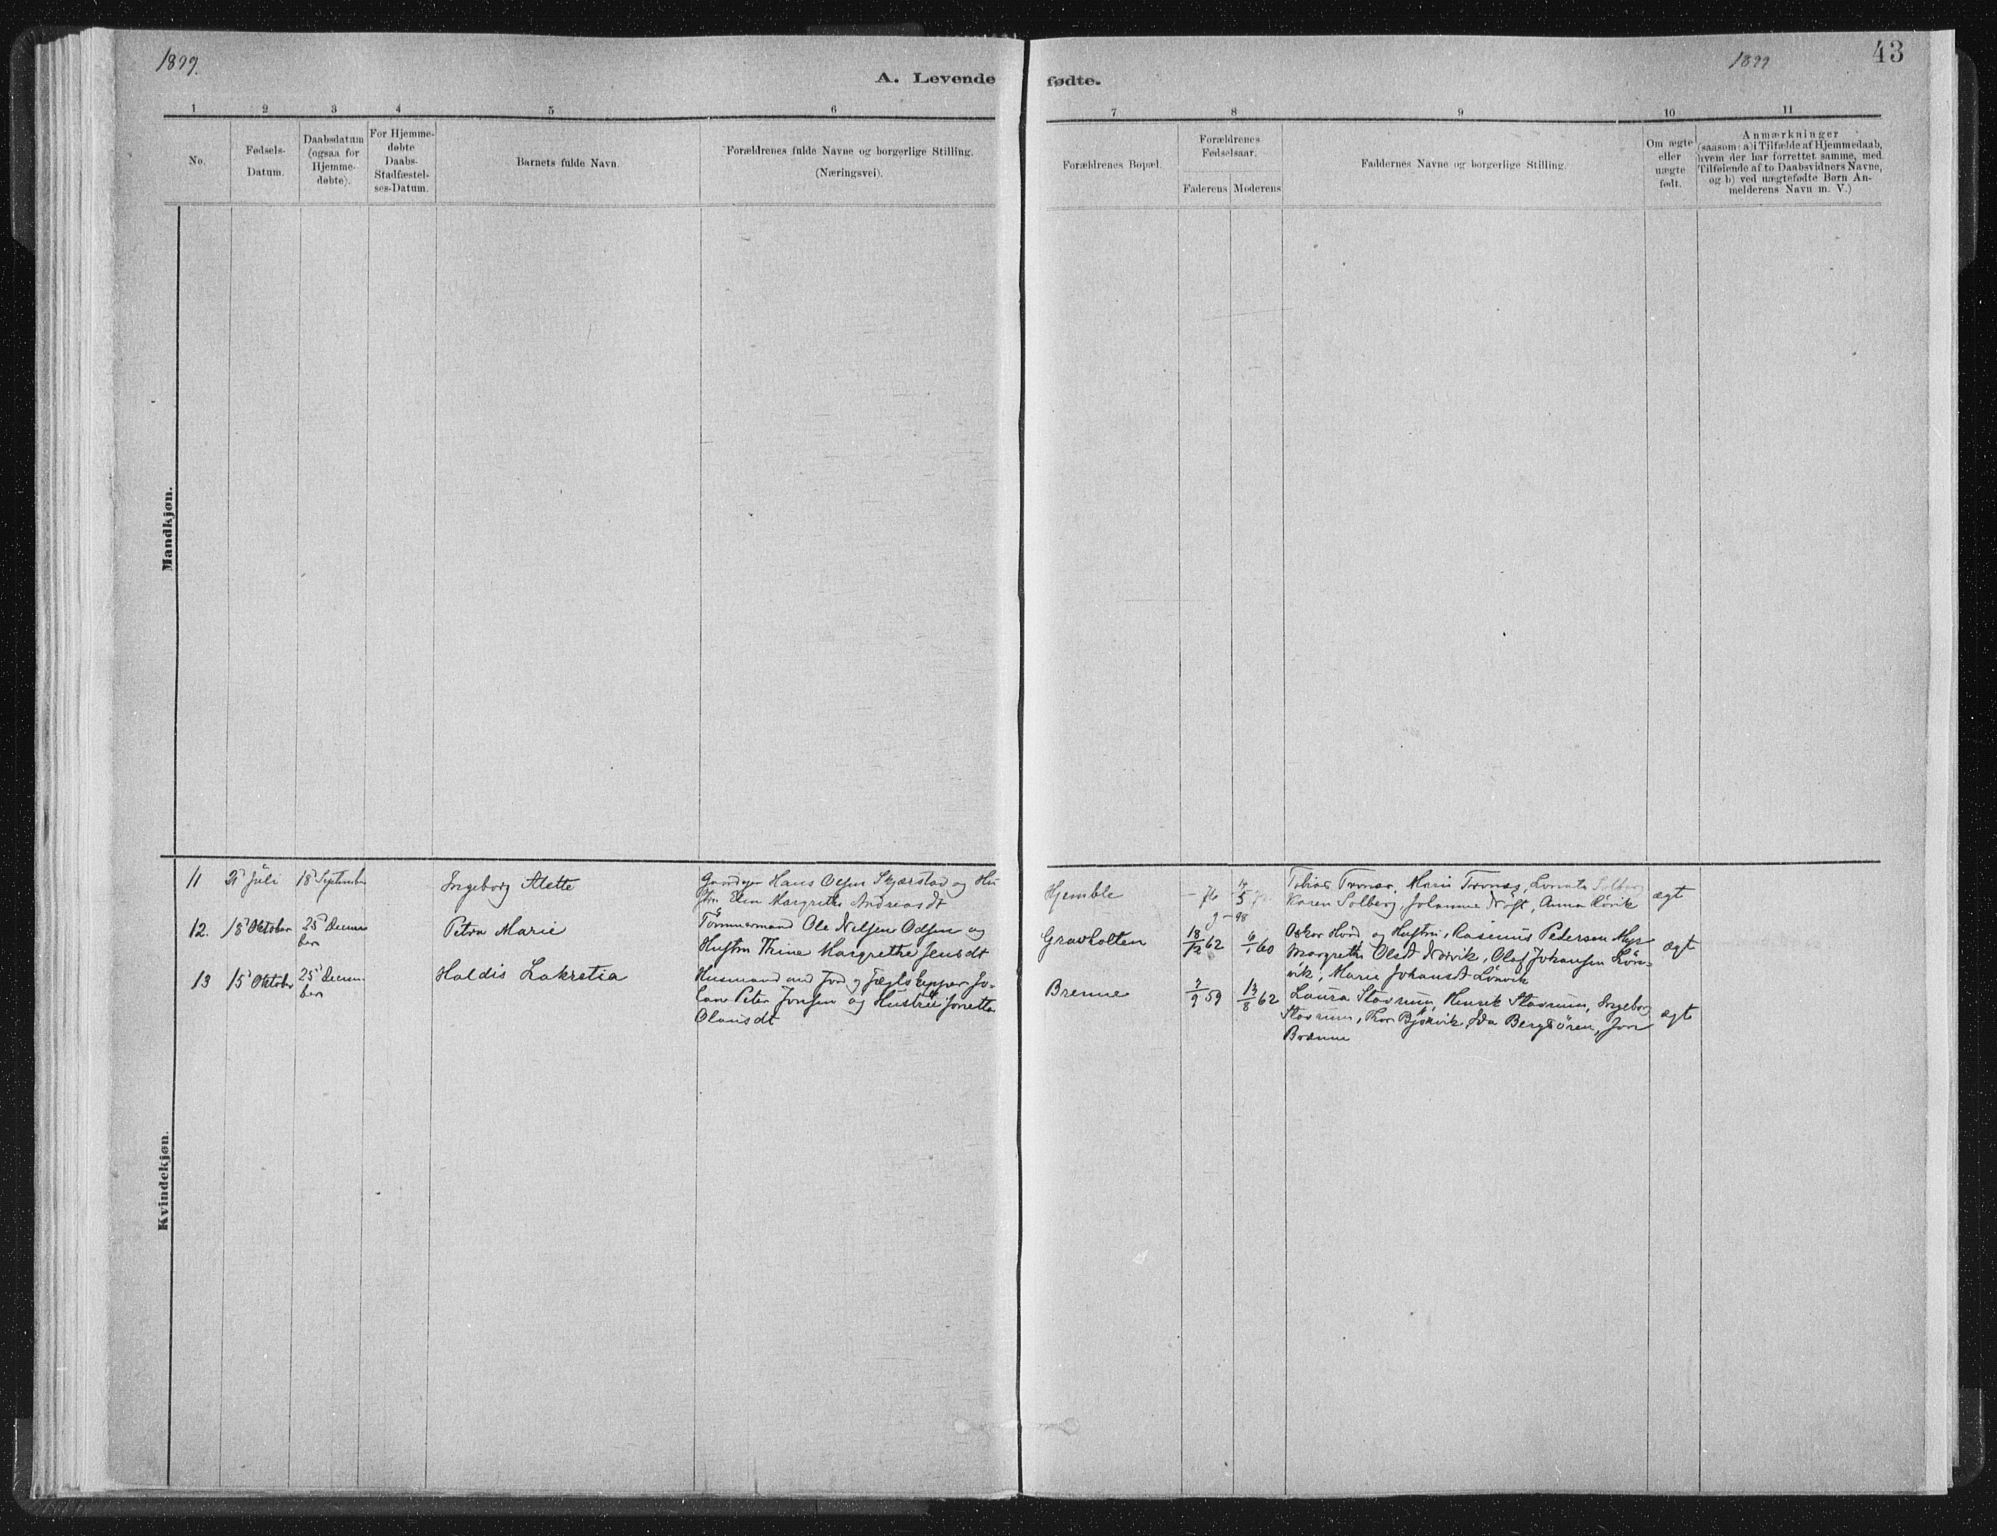 1899.
1899
43
A. Levende fødte.
1 2 3 4 5 6 7 8 9 10 11
No.
Fødsels-
Datum.
Daabsdatum
(ogsaa for
Hjemme-
døbte).
For Hjemme-
døbte
Daabs-
Stadfæstel-
ses-Datum.
Barnets fulde Navn.
Forældrenes fulde Navne og borgerlige Stilling.
(Næringsvei).
Forældrenes Bopæl.
Forældrenes
Fødselsaar.
Faderens
Moderens
Faddernes Navne og borgerlige Stilling.
Om ægte
eller
uægte
født.
Anmærkninger
(saasom: a) i Tilfælde af Hjemmedaab,
hvem der har forrettet samme, med
Tilføiende af to Daabsvidners Navne,
og b) ved uægtefødte Børn An-
melderens Navn m. V.)
Mandkjøn.
Kvindekjøn.
11
Juli
18 September
Ingeborg Alette
Hans Olsen Skjærstad og Hu
stru Elen Margrethe Andreasdt
Hjemble
Tobias Tronæs, Marie Tronæs, Solberg
Karen Solberg, Johanne, Anna
ægt
12.
18 Oktober
25 Decem
ber
Petra Marie
Tömmermand Ole Nelsen Odsen og
Hustru Thine Margrethe Jensdt
Gravholten
18/12 62
6/1 60
Oskar og Hustru, Rasmus Pedersen
Margrethe Olsdt, Olaf Johansen
vik, Marie Johansdt Lönvik
ægt
13
15 Oktober
25 Decem
ber
Haldis Lakretia
Husmand med Jord og Jo-
han Peter Jonsen og Hustru Joretta
Olausdt
Brenne
7/9 59
13/8 62
Laura Stavrum, Henrik Stavrum, Ingeborg
Stavrum, Bjørvik, Ida Bergsören, Jon
Brænne
ægt